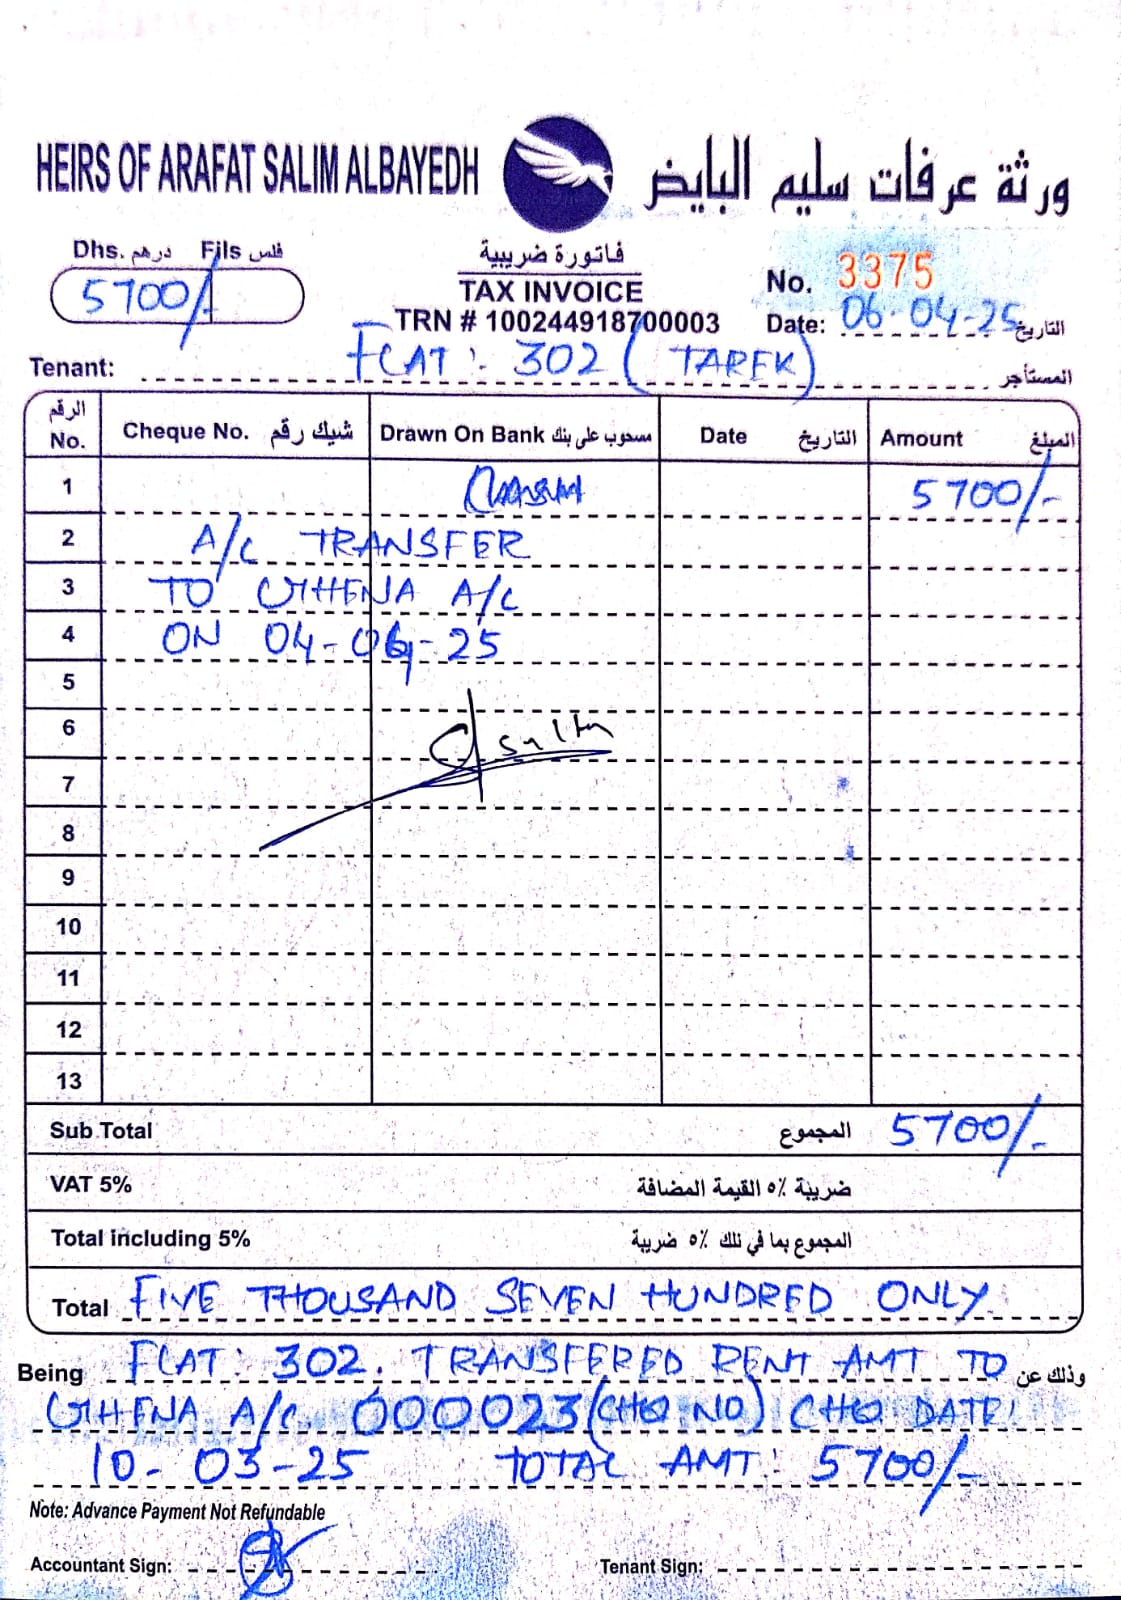 HEIRS OF ARAFAT SALIM ALBAYEDH
ورثة عرفات سليم البايض
Dhs. درهم Fils فلس
5700/-
فاتورة ضريبية
TAX INVOICE
TRN # 100244918700003
No. 3375
Date: 06-04-25 التاريخ
Tenant: FLAT: 302 (TAREK) المستأجر
الرقم No. Cheque No. شيك رقم Drawn On Bank مسحوب على بنك Date التاريخ Amount المبلغ
1 5700/-
2 A/C TRANSFER
3 TO GHENA A/C
4 ON 04-04-25
5
6
7
8
9
10
11
12
13
Sub Total المجموع 5700/-
VAT 5% ضريبة ٥٪ القيمة المضافة
Total including 5% المجموع بما في ذلك ٥٪ ضريبة
Total FIVE THOUSAND SEVEN HUNDRED ONLY
Being FLAT: 302. TRANSFERED RENT AMT TO وذلك عن
GHENA A/C 000023 (CHQ NO) CHQ DATE:
10-03-25 TOTAL AMT: 5700/-
Note: Advance Payment Not Refundable
Accountant Sign:
Tenant Sign: